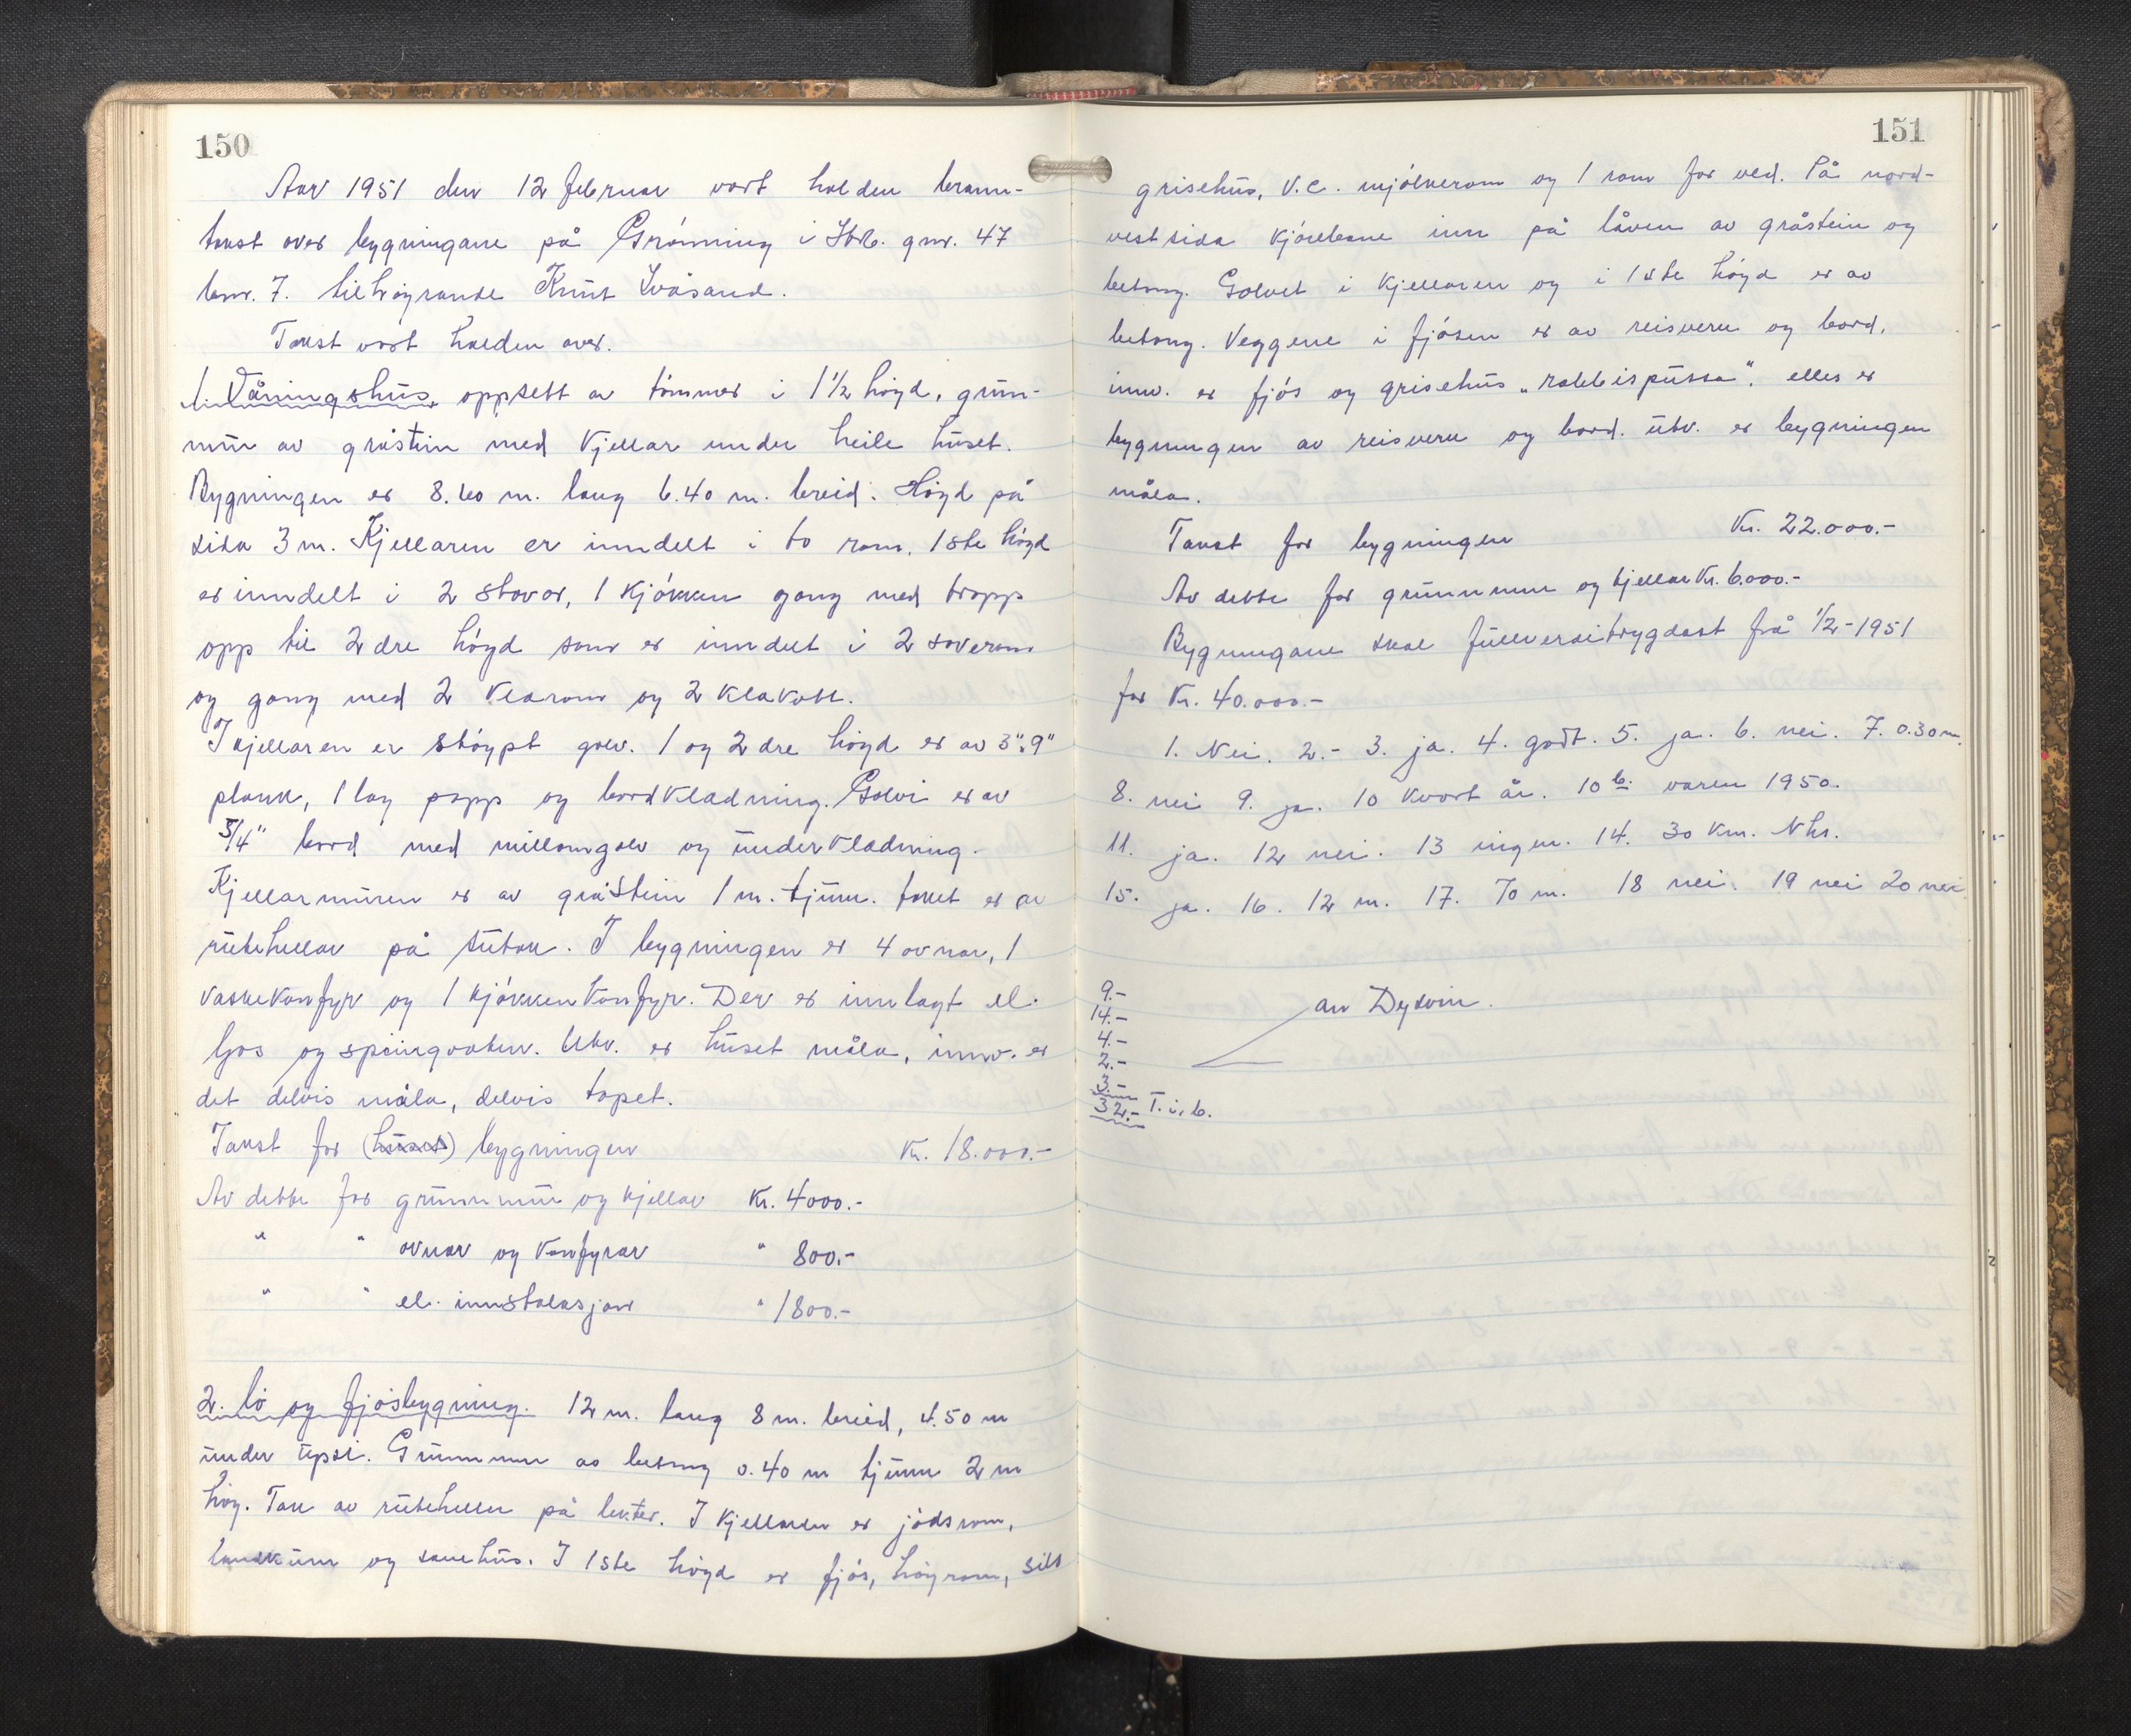 150
Aar 1951 den 12 februar vart halden brann-
takst over bygningane på Grönning i Strb. gnr. 47
bnr. 7. tilhøyrande Knut Kvåsand.
Takst vart halden over.
1. Våningshus, oppsett av tömmer i 1 1/2 högd, grun-
mur av gråstein med kjellar under heile huset.
Bygningen er 8.60 m. lang 6.40 m. breid. Högd på
sida 3 m. Kjellaren er inndelt i to rom, 1ste högd
er inndelt i 2 stovor, 1 kjökken gang med tropp
opp til 2dre högd som er inndelt i 2 soverom
og gang med 2 klerom og 2 klekott.
I kjellaren er stöypt golv. 1 og 2dre högd er av 3"x9"
plank, 1 lag papp og bordkledning. Golvi er av
5/4" bord med millomgolv og underkledning.
Kjellarmuren er av gråstein 1 m. tjuen. taket er av
rutehellar på sutak. I bygningen er 4 ovnar, 1
vaskekomfyr og 1 kjökkenkomfyr. Der er innlagt el.
ljos og springvatn. Utv. er huset måla, innv. er
det delvis måla, delvis tapet.
Takst for (huset) bygningen Kr. 18.000.-
Av dette for grunnmur og kjellar Kr. 4000.-
" " ovnar og komfyrar " 800.-
" " el. innstalasjon " 1800.-
2. Lö og fjösbygning. 12 m. lang 8 m. breid, 4.50 m
under upsi. Grunnmur av betong 0.40 m tjuen 2 m
hög. Tak av rutehellar på lekter. I kjellaren er jødsrom,
landkum og sauehus. I 1ste högd er fjös, höyrom, silo
151
grisehus, V.C. mjölkerom og 1 rom for ved. På nord-
vestsida kjörebane inn på låven av gråstein og
betong. Golvet i kjellaren og i 1ste högd er av
betong. Veggene i fjösen er av reisverk og bord,
innv. er fjös og grisehus "rabbispussa". elles er
bygningen av reisverk og bord. utv. er bygningen
måla.
Takst for bygningen Kr. 22.000.-
Av dette for grunnmur og kjellar Kr. 6.000.-
Bygningane skal fullverditrygdast frå 1/2-1951
for Kr. 40.000.-
1. Nei. 2.- 3. ja. 4. godt. 5. ja. 6. nei. 7. 0.30 m.
8. nei 9. ja. 10 kvart år. 10 b. våren 1950.
11. ja. 12 nei. 13 ingen. 14. 30 km. Nhs.
15. ja. 16. 12 m. 17. 70 m. 18 nei. 19 nei 20 nei
9.-
14.- av Dysvin.
4.-
2.-
3.-
32.- T.i.b.